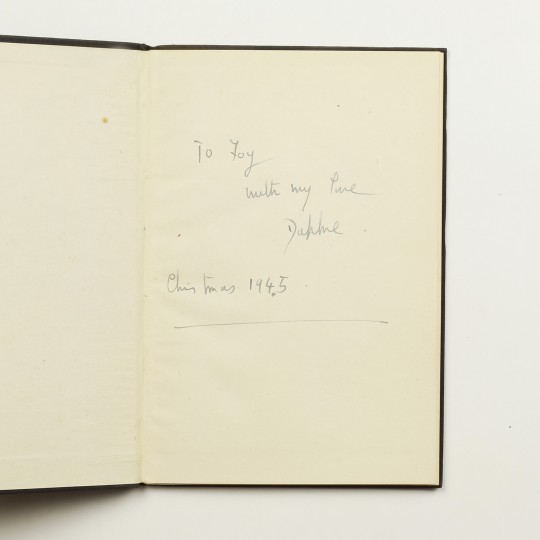 To Foy
with my love
Daphne
Christmas 1945